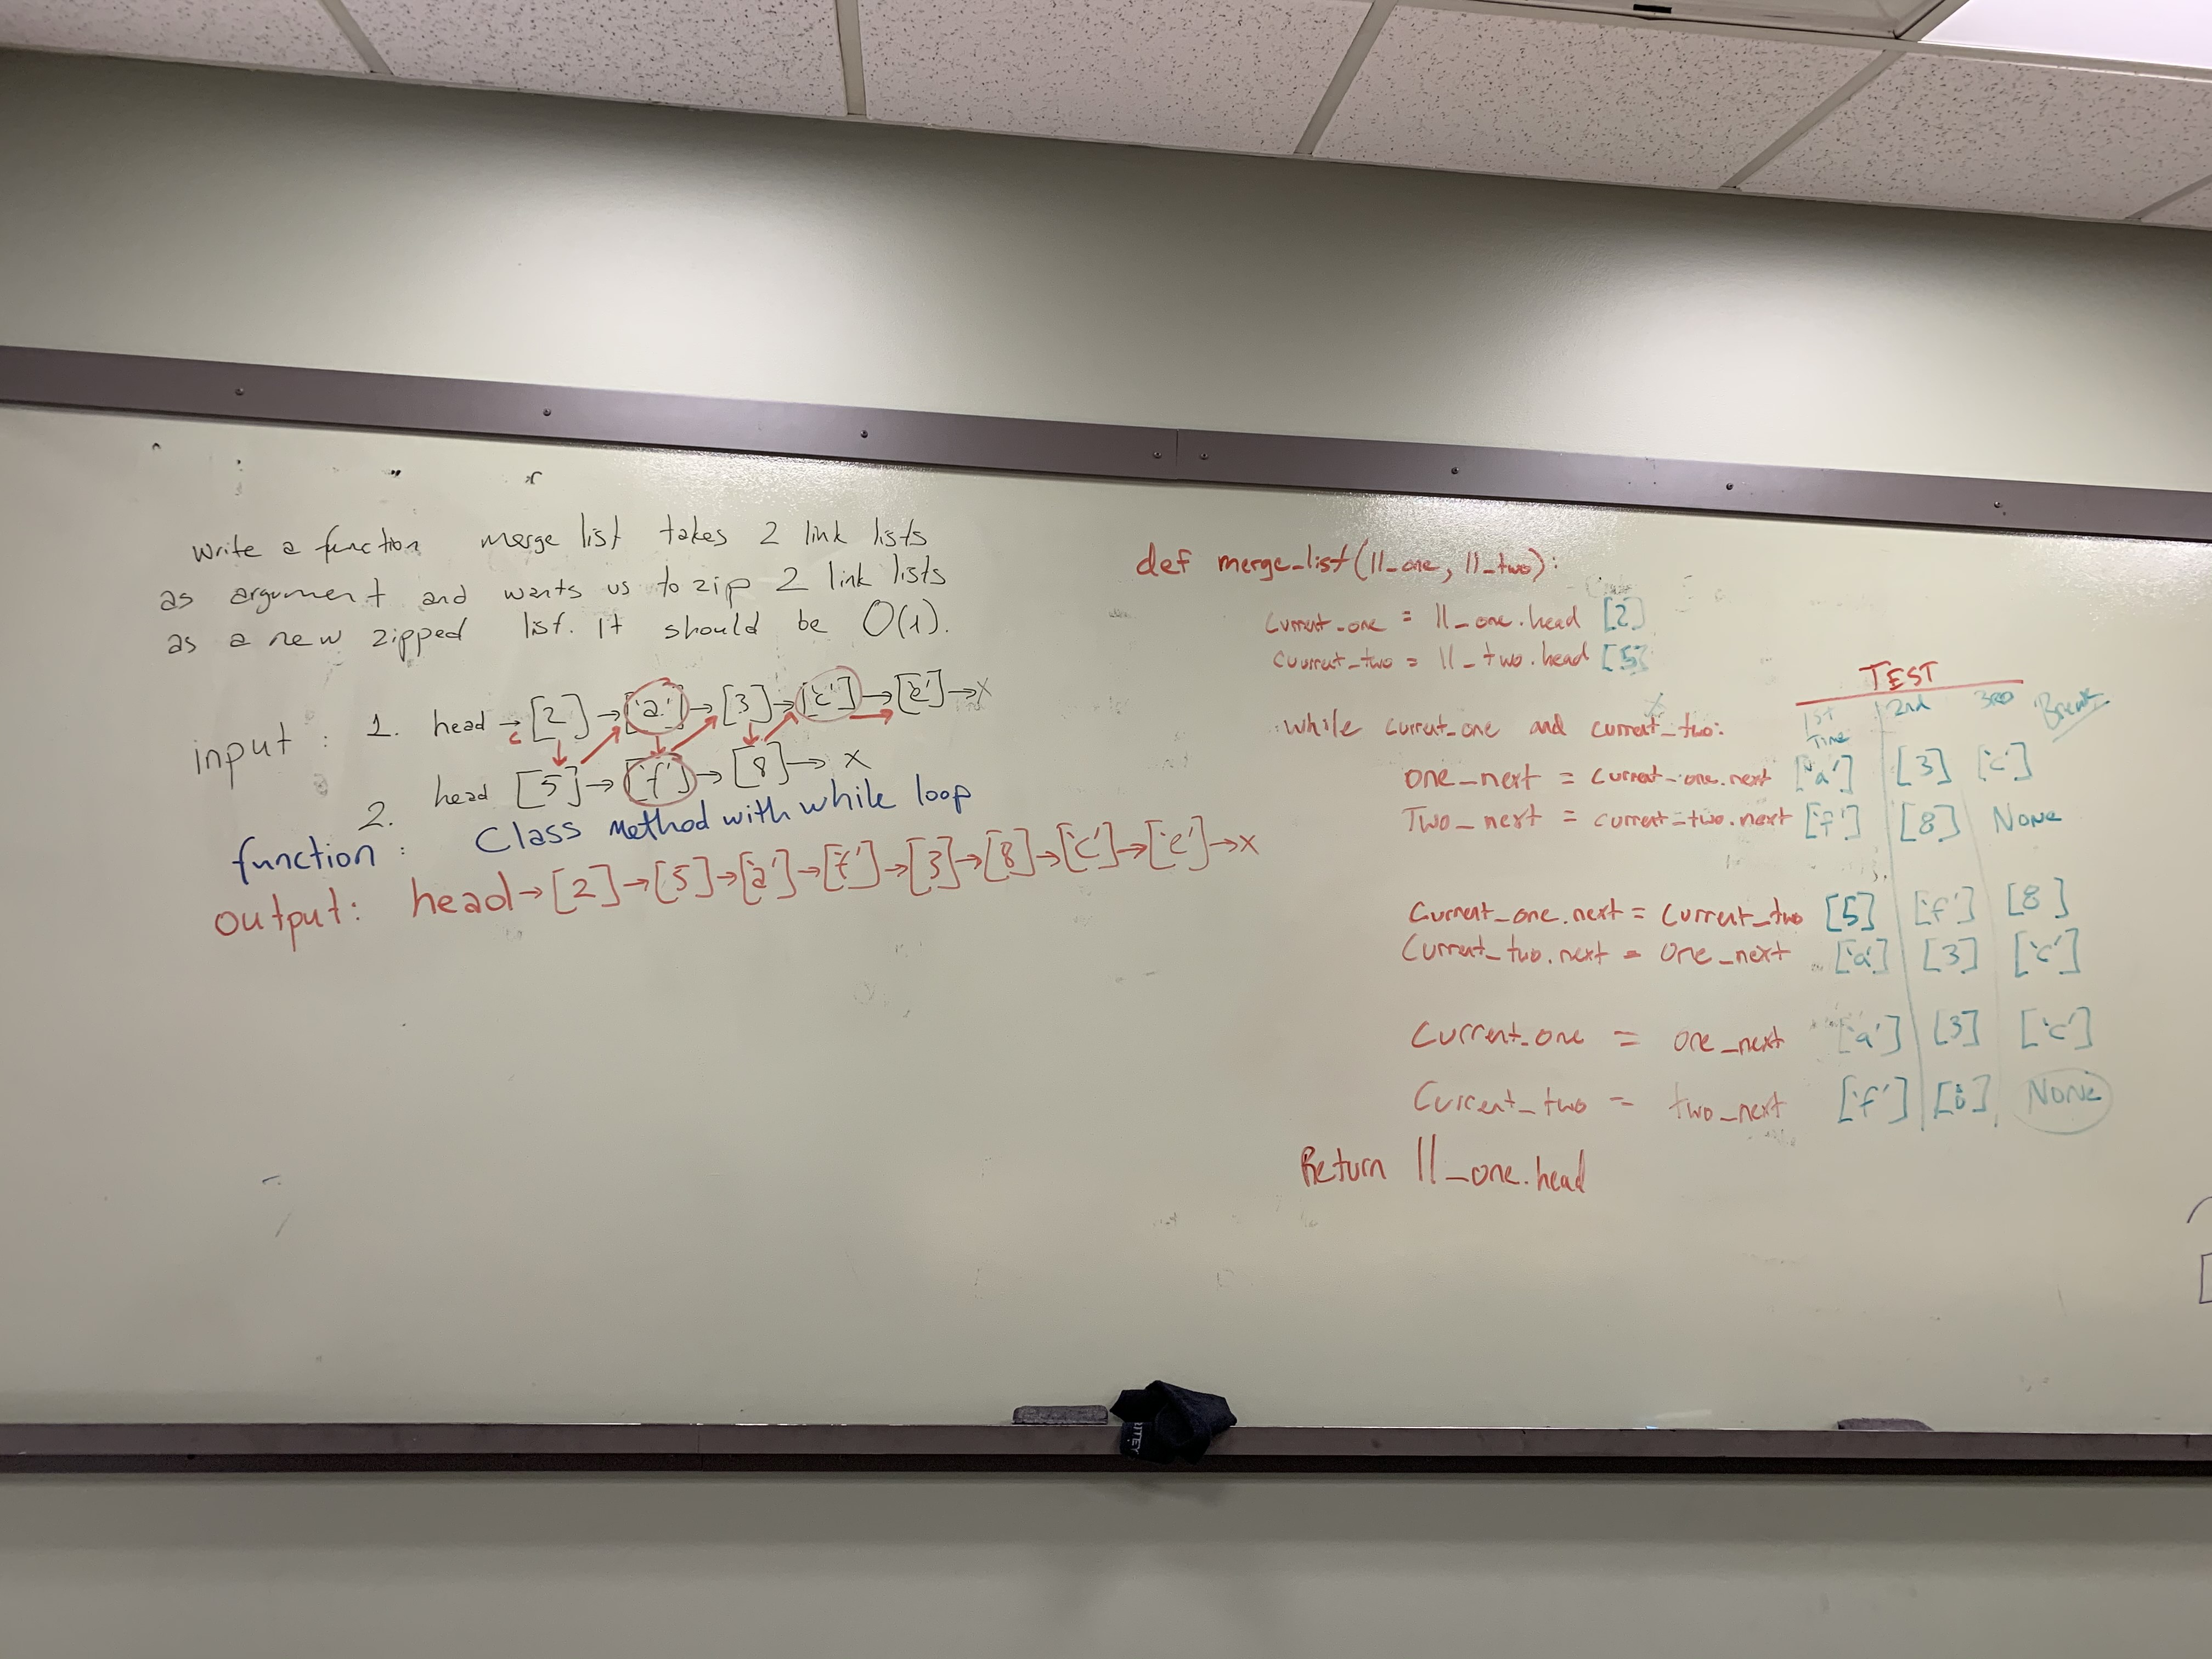 write a function merge list takes 2 link lists
as argument and wants us to zip 2 link lists
as a new zipped list. It should be O(1).
input : 1. head → [2] → ['a'] → [3] → ['c'] → ['e'] → X
2. head [5] → ['f'] → [8] → X
function : Class Method with while loop
output: head → [2] → [5] → ['a'] → ['f'] → [3] → [8] → ['c'] → ['e'] → X
def merge_list(ll_one, ll_two):
current_one = ll_one.head [2]
cuurrent_two = ll_two.head [5]
TEST
1st Time 2nd 3RD Break
while current_one and current_two:
one_next = current_one.next ['a'] [3] ['c']
Two_next = current_two.next ['f'] [8] None
Current_one.next = Current_two [5] ['f'] [8]
Current_two.next = one_next ['a'] [3] ['c']
Current_one = one_next ['a'] [3] ['c']
Current_two = two_next ['f'] [8] None
Return ll_one.head